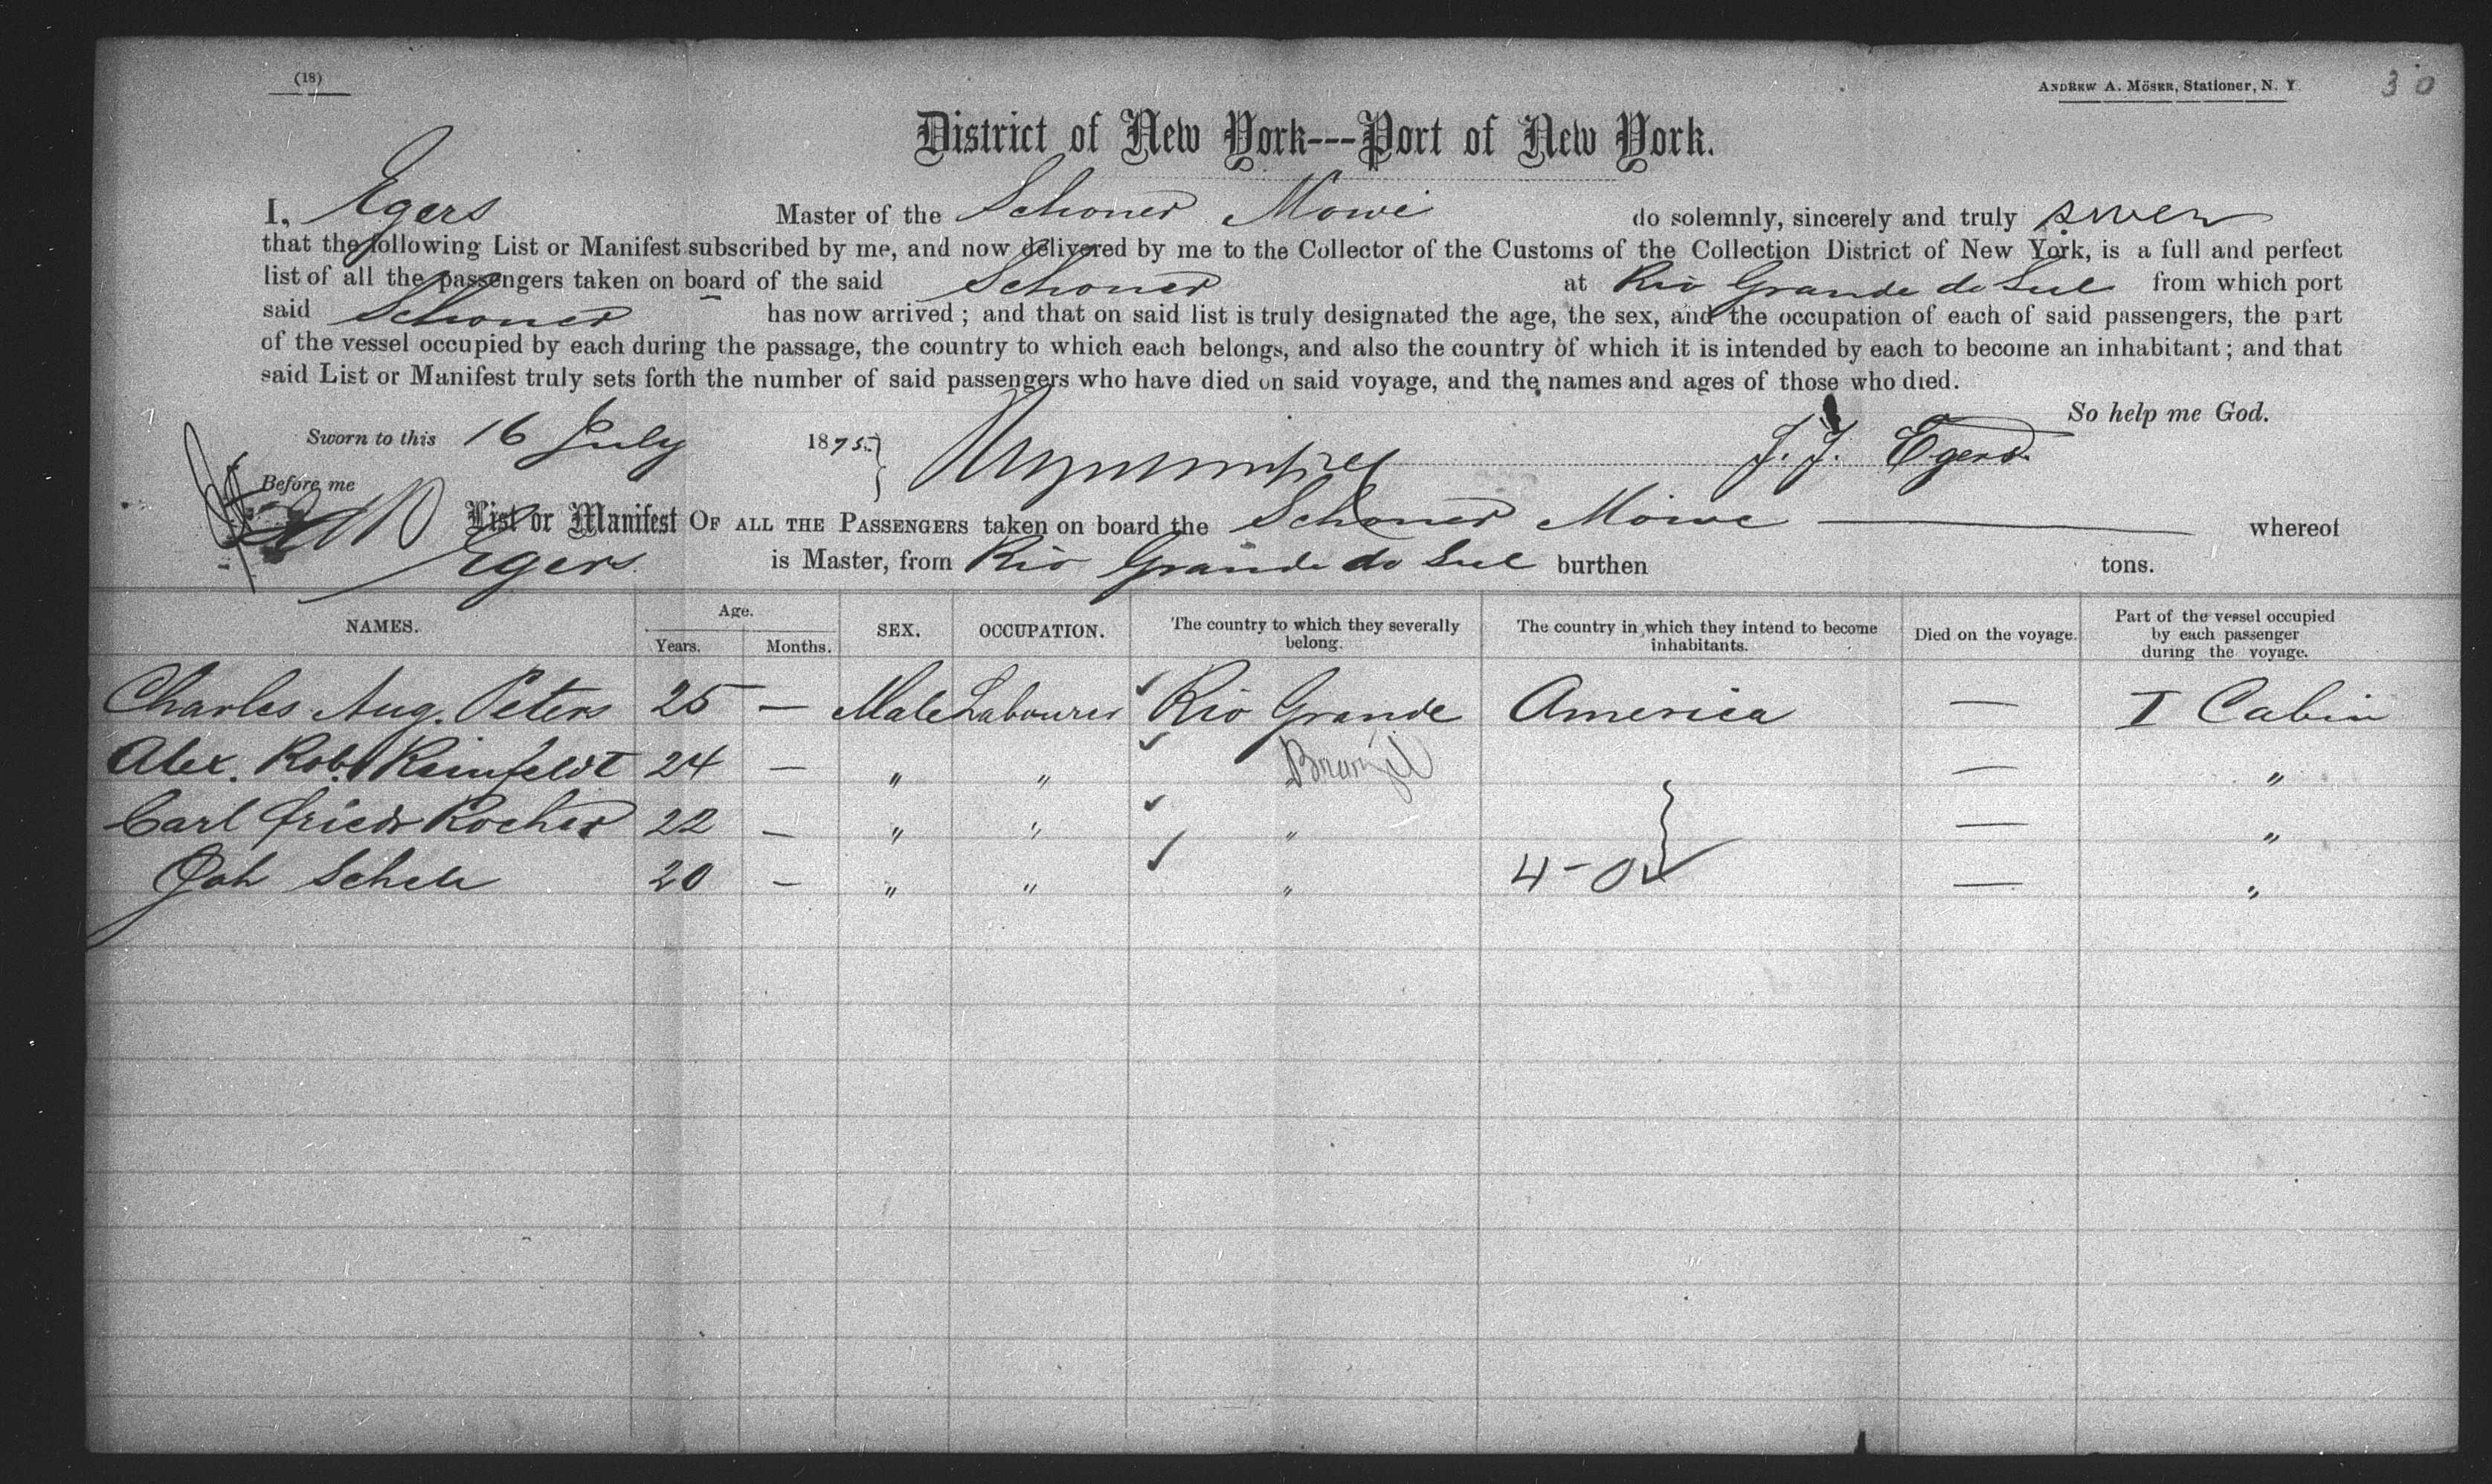 (18)
ANDREW A. MÖSER, Stationer, N. Y.
30
District of New York---Port of New York.
I, Egers Master of the Schoner Mowe do solemnly, sincerely and truly swer
that the following List or Manifest subscribed by me, and now delivered by me to the Collector of the Customs of the Collection District of New York, is a full and perfect
list of all the passengers taken on board of the said Schoner at Rio Grande do Sul from which port
said Schoner has now arrived; and that on said list is truly designated the age, the sex, and the occupation of each of said passengers, the part
of the vessel occupied by each during the passage, the country to which each belongs, and also the country of which it is intended by each to become an inhabitant; and that
said List or Manifest truly sets forth the number of said passengers who have died on said voyage, and the names and ages of those who died.
So help me God.
Sworn to this 16 July 1875. J. J. Egers
Before me
List or Manifest OF ALL THE PASSENGERS taken on board the Schoner Möwe whereof
Egers is Master, from Rio Grande do Sul burthen tons.
NAMES. Age. Years. Months. SEX. OCCUPATION. The country to which they severally belong. The country in which they intend to become inhabitants. Died on the voyage. Part of the vessel occupied by each passenger during the voyage.
Charles Aug. Peters 25 — Male Labourer ✓ Rio Grande America — I Cabin
Alex. Rob. Reinfeldt 24 — " " ✓ Brazil — "
Carl Friedr Rocher 22 — " " ✓ " — "
Joh 20 — " " ✓ " 4-0 ✓ — "